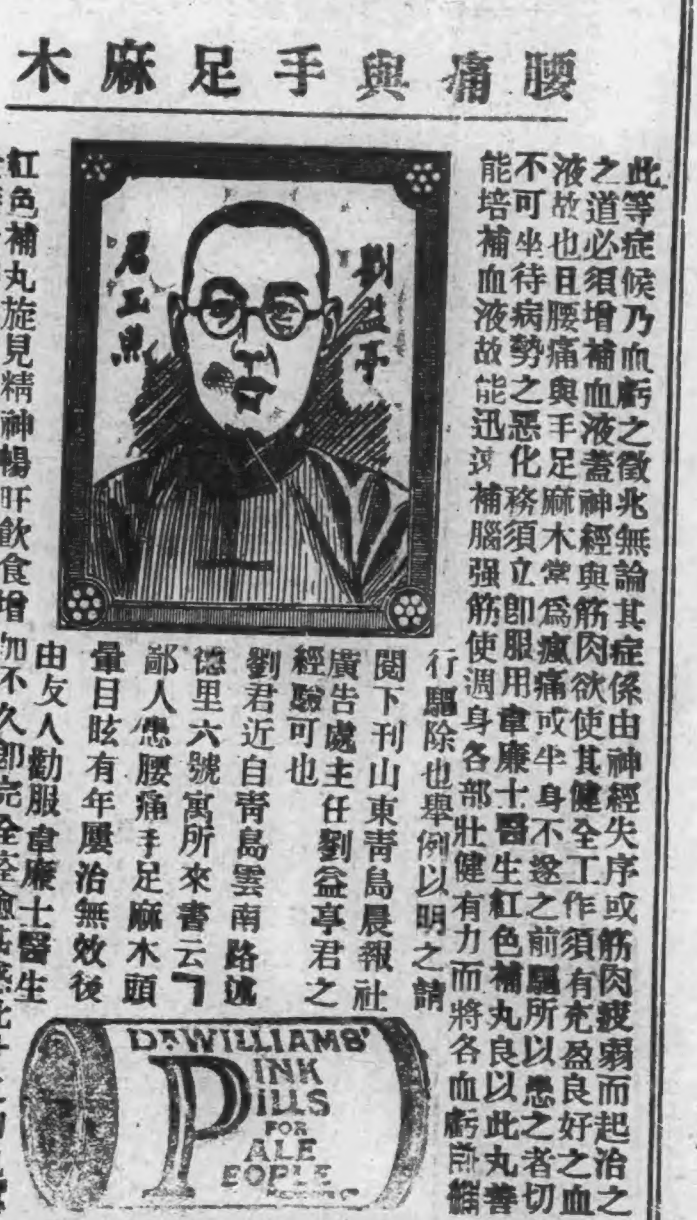 腰痛與手足麻木
此等症候乃血虧之徵兆無論其症係由神經失序或筋肉疲弱而起治之
之道必須增補血液蓋神經與筋肉欲使其健全工作須有充盈良好之血
液故也且腰痛與手足麻木常爲瘋痛或半身不遂之前驅所以患之者切
不可坐待病勢之惡化務須立卽服用韋廉士醫生紅色補丸良以此丸善
能培補血液故能迅速補腦强筋使週身各部壯健有力而將各血虧
行驅除也舉例以明之請
閱下刊山東靑島晨報社
廣告處主任劉益亭君之
經驗可也
劉君近自靑島雲南路
德里六號寓所來書云「
鄙人患腰痛手足麻木頭
暈目眩有年屢治無效後
由友人勸服韋廉士醫生
紅色補丸旋見精神暢旺飲食增加不久卽完全痊愈
劉益亭
君玉照
DR WILLIAMS'
PINK
PILLS
FOR
PALE
PEOPLE